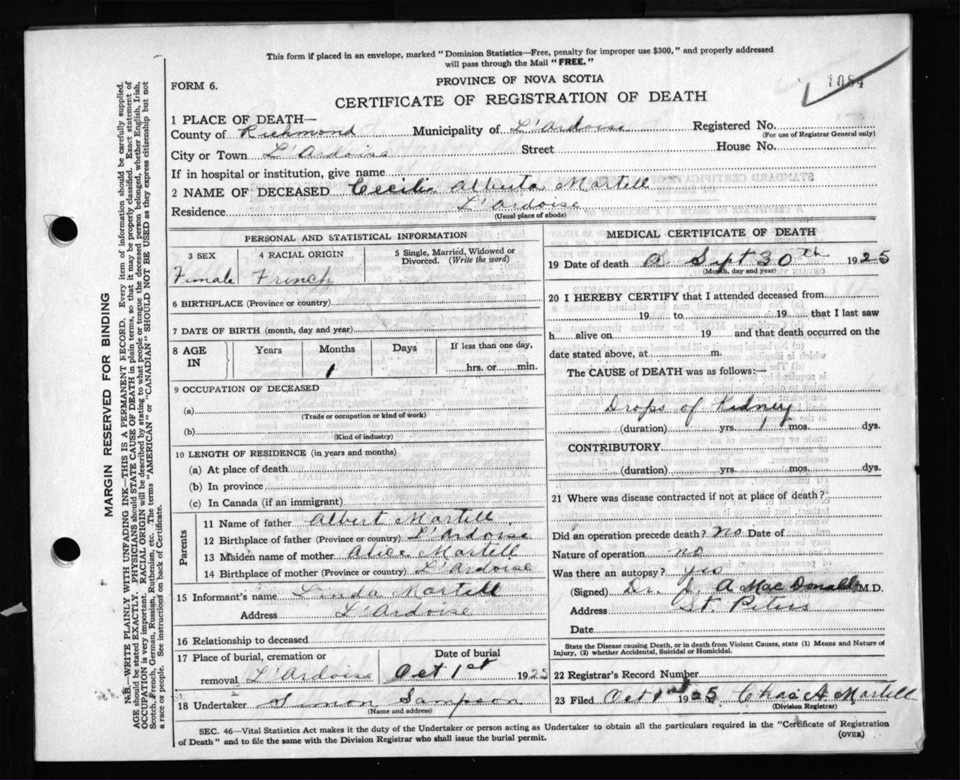 This form if placed in an envelope, marked "Dominion Statistics—Free, penalty for improper use $300," and properly addressed
will pass through the Mail "FREE."
FORM 6.
PROVINCE OF NOVA SCOTIA
1084
CERTIFICATE OF REGISTRATION OF DEATH
1 PLACE OF DEATH—
County of Richmond Municipality of L'Ardoise Registered No.
(For use of Registrar General only)
City or Town L'Ardoise Street House No.
If in hospital or institution, give name
2 NAME OF DECEASED Cecilia Alberta Martell
Residence L'Ardoise
(Usual place of abode)
PERSONAL AND STATISTICAL INFORMATION
3 SEX 4 RACIAL ORIGIN 5 Single, Married, Widowed or
Divorced. (Write the word)
Female French
6 BIRTHPLACE (Province or country)
7 DATE OF BIRTH (month, day and year)
8 AGE IN Years Months Days If less than one day,
1 hrs. or min.
9 OCCUPATION OF DECEASED
(a)
(Trade or occupation or kind of work)
(b)
(Kind of industry)
10 LENGTH OF RESIDENCE (in years and months)
(a) At place of death
(b) In province
(c) In Canada (if an immigrant)
Parents
11 Name of father Albert Martell
12 Birthplace of father (Province or country) L'Ardoise
13 Maiden name of mother Alice Martell
14 Birthplace of mother (Province or country) L'Ardoise
15 Informant's name Linda Martell
Address L'Ardoise
16 Relationship to deceased
17 Place of burial, cremation or Date of burial
removal L'Ardoise Oct 1st 1925
18 Undertaker Simon Sampson
(Name and address)
MEDICAL CERTIFICATE OF DEATH
19 Date of death Sept 30th 1925
(Month, day and year)
20 I HEREBY CERTIFY that I attended deceased from
19 to 19 that I last saw
h alive on 19 and that death occurred on the
date stated above, at m.
The CAUSE of DEATH was as follows:—
Drops of Kidney
(duration) yrs. mos. dys.
CONTRIBUTORY
(duration) yrs. mos. dys.
21 Where was disease contracted if not at place of death?
Did an operation precede death? no Date of
Nature of operation no
Was there an autopsy? yes
(Signed) Dr. J. A MacDonald M.D.
Address St Peters
Date
State the Disease causing Death, or in death from Violent Causes, state (1) Means and Nature of
Injury, (2) whether Accidental, Suicidal or Homicidal.
22 Registrar's Record Number
23 Filed Oct 1st 1925 Chas A Martell
(Division Registrar)
SEC. 46—Vital Statistics Act makes it the duty of the Undertaker or person acting as Undertaker to obtain all the particulars required in the "Certificate of Registration
of Death" and to file the same with the Division Registrar who shall issue the burial permit.
(OVER)
MARGIN RESERVED FOR BINDING
N.B.—WRITE PLAINLY WITH UNFADING INK—THIS IS A PERMANENT RECORD. Every item of information should be carefully supplied.
AGE should be stated EXACTLY. PHYSICIANS should STATE CAUSE OF DEATH in plain terms, so that it may be properly classified. Exact statement of
OCCUPATION is very important. RACIAL ORIGIN will be described by stating to what people or tongue the deceased person belonged, whether English, Irish,
Scotch, French, German, Russian, Ruthenian, etc. The terms "AMERICAN" or "CANADIAN" SHOULD NOT BE USED as they express citizenship but not
a race or people. See instructions on back of Certificate.